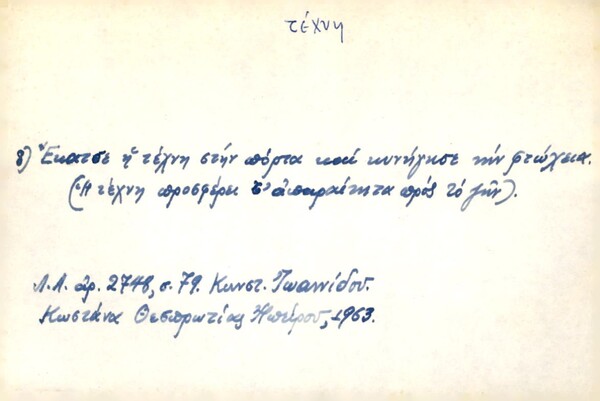 τέχνη
8) Ἔκατσε ἡ τέχνη στήν πόρτα καί κυνήγησε τήν φτώχεια.
(Ἡ τέχνη προσφέρει τ' ἀπαραίτητα πρός τό ζῆν).
Λ.Α. ἀρ. 2748, σ. 79. Κωνστ. Ἰωαννίδου.
Κωστάνα Θεσπρωτίας Ἠπείρου, 1963.